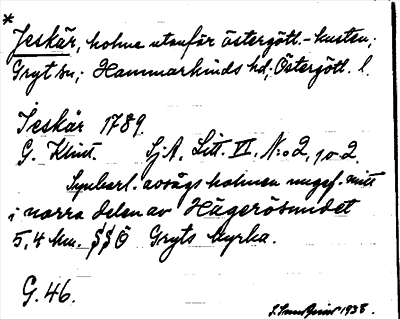 *
Jeskär, holme utanför östergötl.-kusten;
Gryt sn; Hammarkinds hd; Östergötl. l.
Jeskär 1789.
G. Klint. Sj.A. Litt. VI, N:o 2, p. 2.
Synbarl. avsågs holmen ungef. mitt
i norra delen av Hägerösundet
5,4 km. SSÖ Gryts kyrka.
G. 46.
1938.